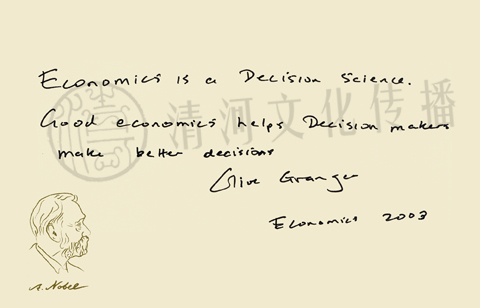 Economics is a Decision Science.
清河文化传播
Good economics helps Decision makers
make better decisions
Clive Granger
Economics 2003
A. Nobel